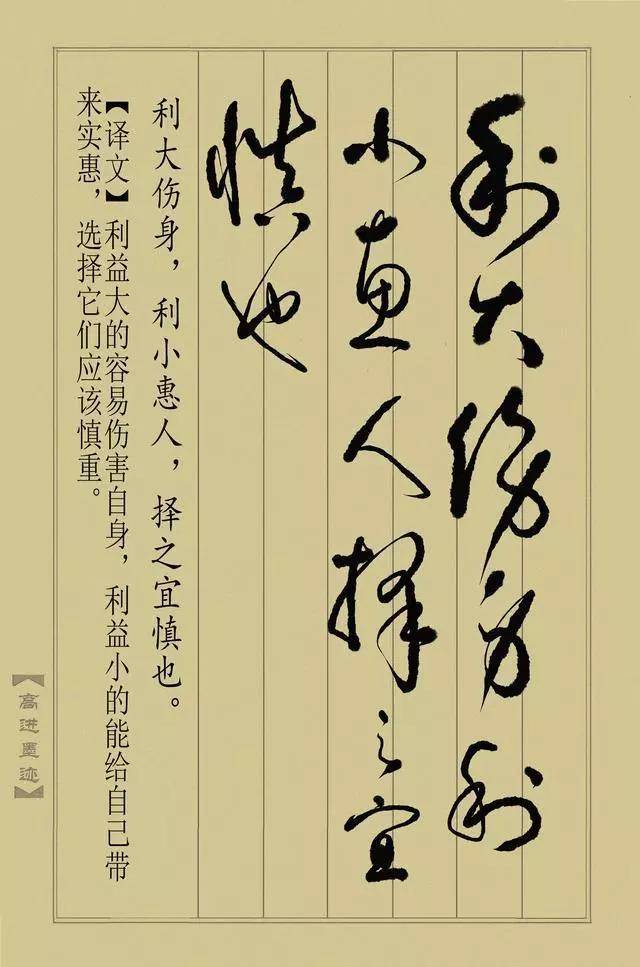 利大伤身利
小惠人择之宜
慎也
利大伤身，利小惠人，择之宜慎也。
【译文】利益大的容易伤害自身，利益小的能给自己带
来实惠，选择它们应该慎重。
【高进墨迹】